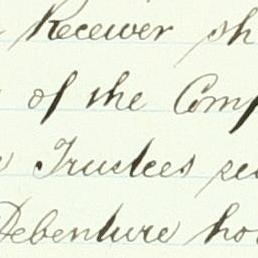 Receiver sh
of the Comp
Trustees
Debenture ho